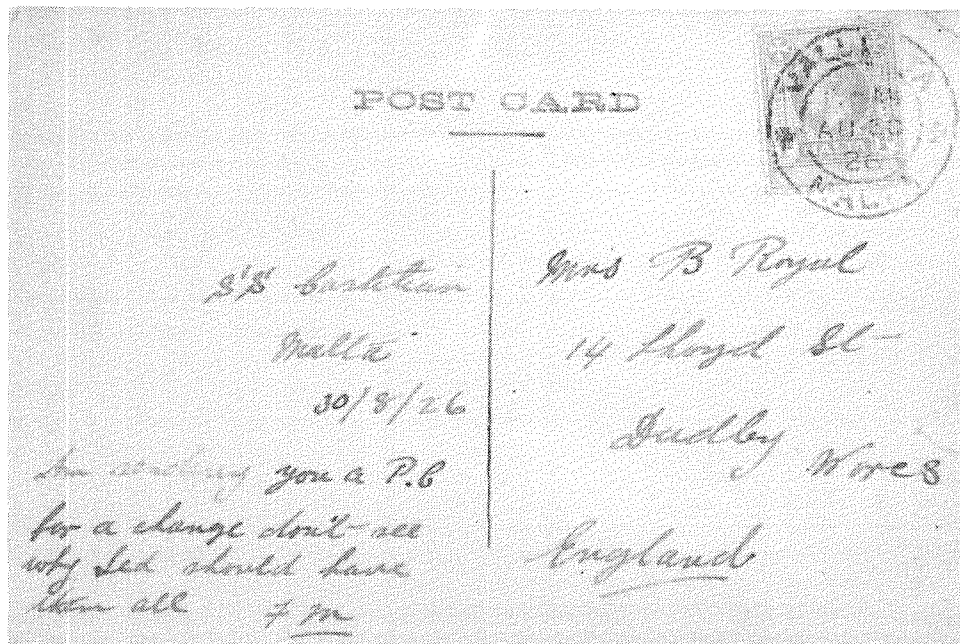 POST CARD
VALLETTA
AU 30
26
MALTA
S'S
Malta
30/8/26
Am sending you a P.C
for a change don't see
why Led should have
them all
F M
Mrs B Royal
14 Lloyd St
Dudley
Worcs
England